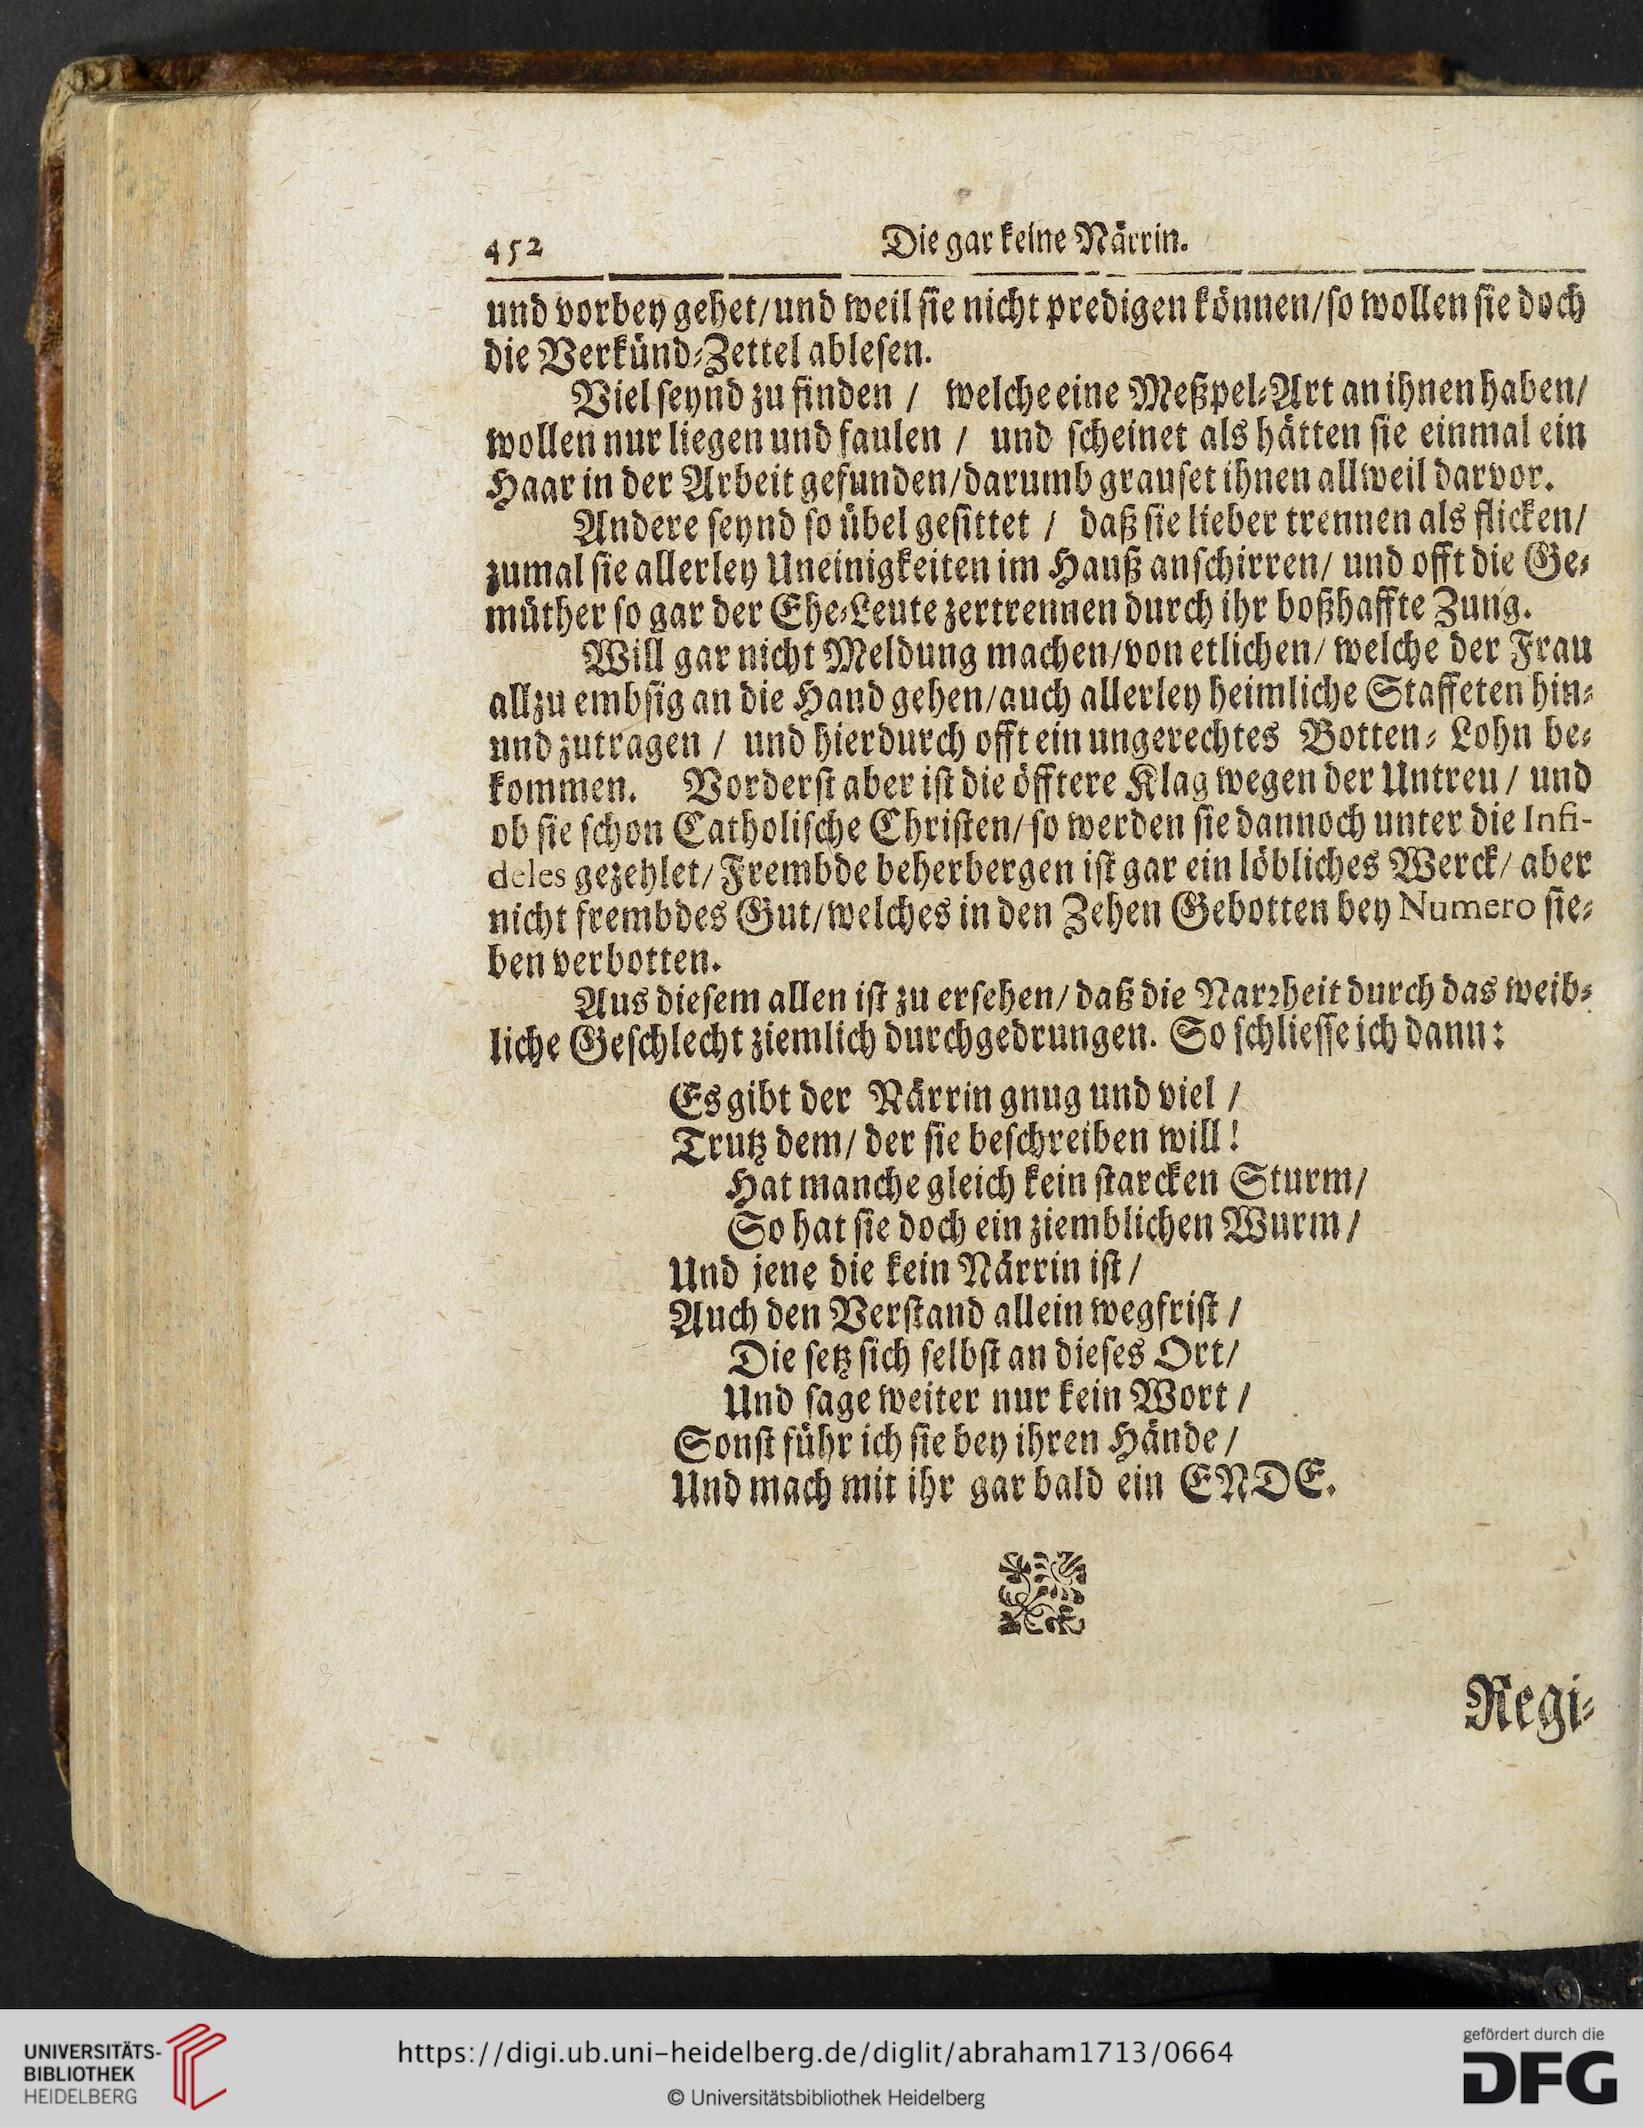 452 Die gar keine Närrin.
und vorbey gehet/und weil sie nicht predigen können/so wollen sie doch
die Verkünd-Zettel ablesen.
Viel seynd zu finden / welche eine Meßpel-Art an ihnen haben/
wollen nur liegen und faulen / und scheinet als hätten sie einmal ein
Haar in der Arbeit gefunden/darumb grauset ihnen allweil darvor.
Andere seynd so übel gesittet / daß sie lieber trennen als flicken/
zumal sie allerley Uneinigkeiten im Hauß anschirren/ und offt die Ge-
müther so gar der Ehe-Leute zertrennen durch ihr boßhaffte Zung.
Will gar nicht Meldung machen/von etlichen/ welche der Frau
allzu embsig an die Hand gehen/auch allerley heimliche Staffeten hin-
und zutragen / und hierdurch offt ein ungerechtes Botten- Lohn be-
kommen. Vorderst aber ist die öfftere Klag wegen der Untreu / und
ob sie schon Catholische Christen/ so werden sie dannoch unter die Infi-
deles gezehlet/ Frembde beherbergen ist gar ein löbliches Werck/ aber
nicht frembdes Gut/welches in den Zehen Gebotten bey Numero sie-
ben verbotten.
Aus diesem allen ist zu ersehen/ daß die Narrheit durch das weib-
liche Geschlecht ziemlich durchgedrungen. So schliesse ich dann:
Es gibt der Närrin gnug und viel /
Trutz dem/ der sie beschreiben will!
Hat manche gleich kein starcken Sturm/
So hat sie doch ein ziemblichen Wurm /
Und jene die kein Närrin ist /
Auch den Verstand allein wegfrist /
Die setz sich selbst an dieses Ort/
Und sage weiter nur kein Wort /
Sonst führ ich sie bey ihren Hände /
Und mach mit ihr gar bald ein ENDE.
Regi-
UNIVERSITÄTS-
BIBLIOTHEK
HEIDELBERG
https://digi.ub.uni-heidelberg.de/diglit/abraham1713/0664
© Universitätsbibliothek Heidelberg
gefördert durch die
DFG